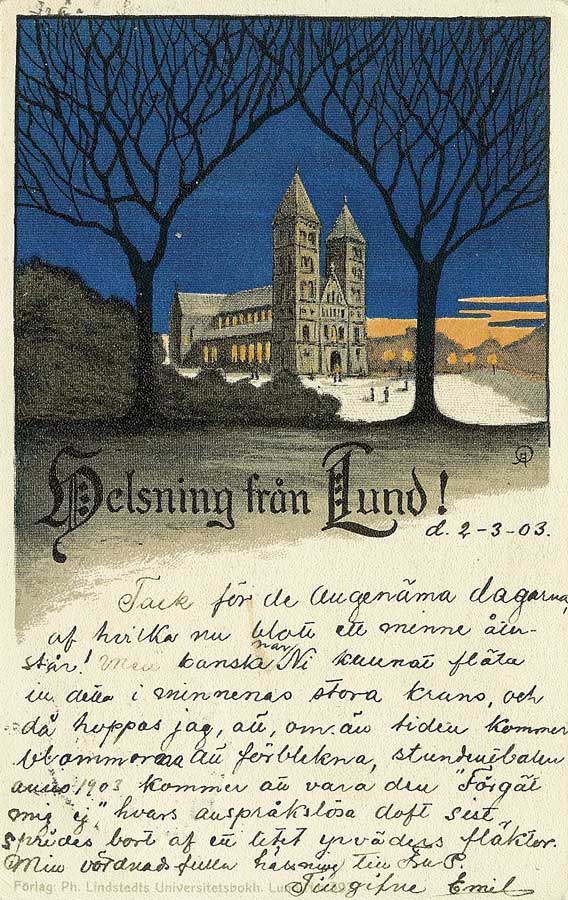 Helsning från Lund!
d. 2-3-03.
Tack för de angenäma dagarna,
af hvilka nu blott ett minne åter-
står! Men kanske har Ni kunnat fläta
in detta i minnenas stora krans, och
då hoppas jag, att, om än tiden kommer
blommorna att förblekna, studentbalen
anno 1903 kommer att vara den "Förgät
mig ej", hvars anspråkslösa doft sist
sprides bort af ett litet yrväders fläktar.
Min vördnadsfulla hälsning till
Förlag: Ph. Lindstedts Universitetsbokh. Lund
Emil